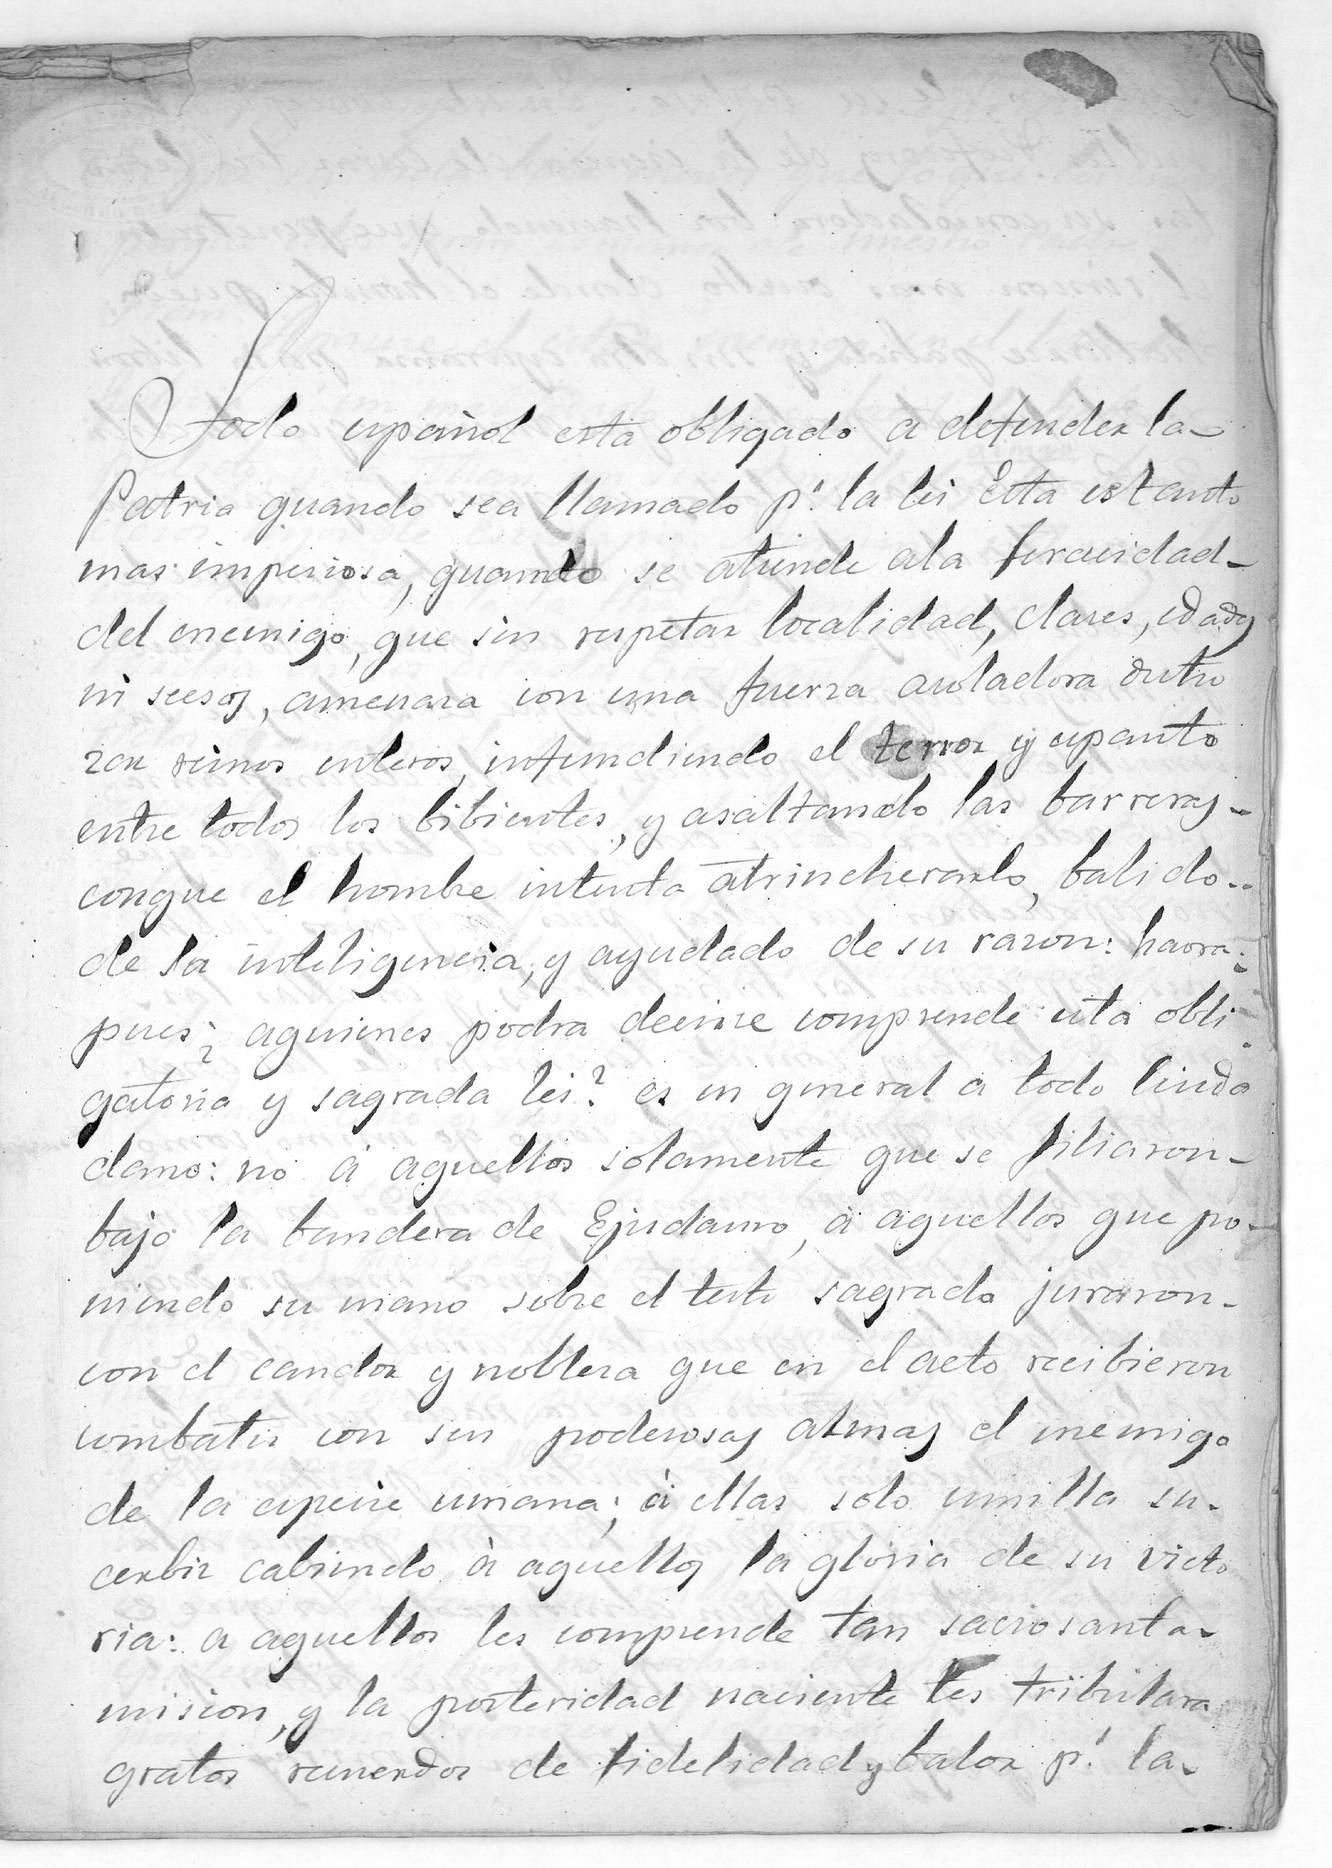 Todo español esta obligado a defender la
Patria quando sea llamado pr. la lei Esta es tanto
mas imperiosa, quando se atiende ala feracidad
del enemigo, que sin respetar localidad, clases, edades
ni secsos, amenaza con una fuerza asoladora destro
zar reinos enteros, infundiendo el terror y espanto
entre todos los bibientes, y asaltando las barreras
conque el hombre intenta atrincherarlo, balido
de la inteligencia, y ayudado de su razon: haora
pues; aquienes podra decirse comprende esta obli
gatoria y sagrada lei? es en general a todo Ciuda
dano: no á aquellos solamente que se filiaron
bajo la bandera de á aquellos que po
niendo su mano sobre el testo sagrado juraron
con el candor y nobleza que en el acto recibieron
combatir con sus poderosas almas el enemigo
de la especie umana; á ellas solo umilla su
cabiendo à aquellos la gloria de su victo
ria: a aquellos les comprende tan sacrosanta
mision, y la posteridad naciente les tributara
gratos recuerdos de fidelidad y balor pr. la